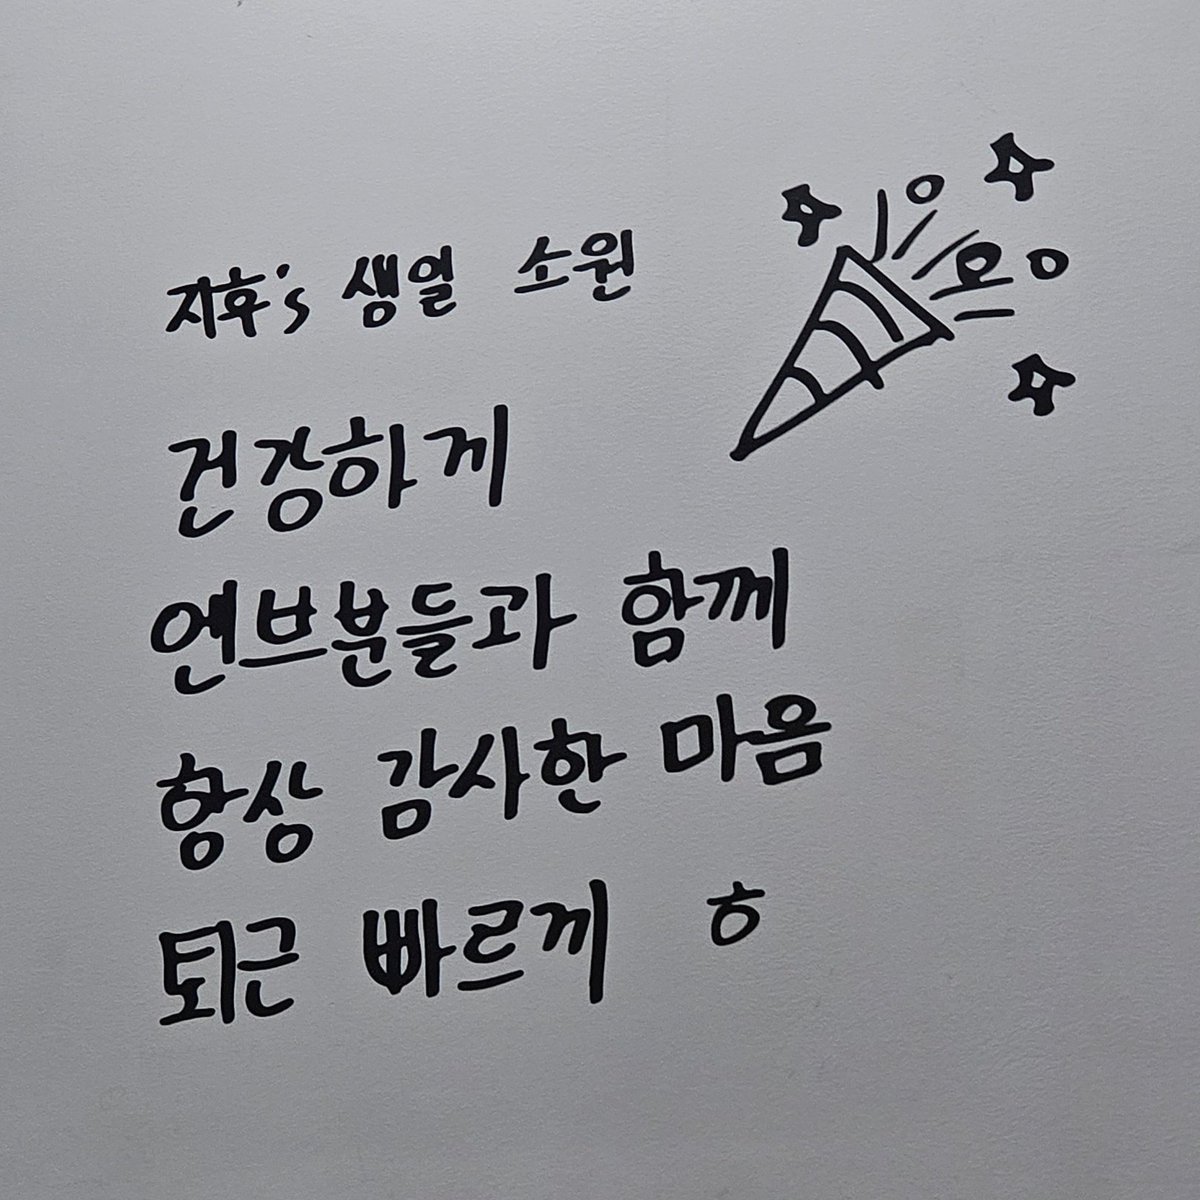 지후's 생일 소원
건강하게
엔브분들과 함께
항상 감사한 마음
퇴근 빠르게 ㅎ